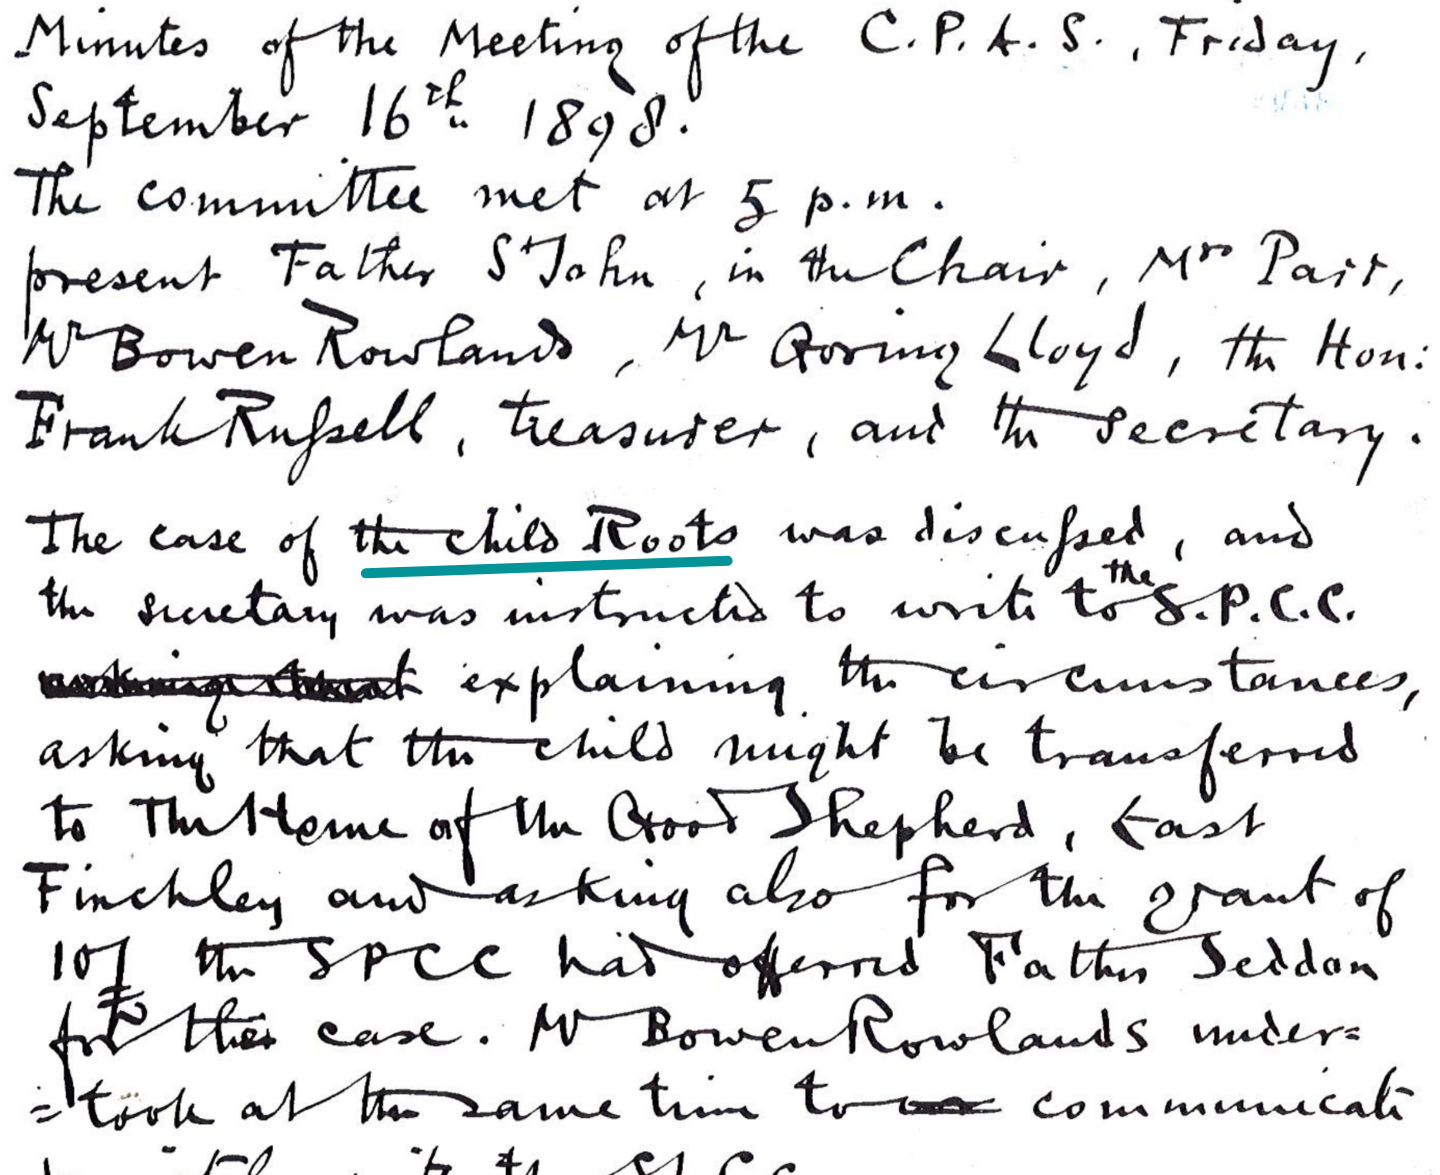 Minutes of the Meeting of the C.P.A.S., Friday,
September 16th 1898.
The committee met at 5 p.m.
present Father St John, in the Chair, Mrs Parr,
Mr Bowen Rowlands, Mr Goring Lloyd, the Hon:
Frank Russell, treasurer, and the Secretary.
The case of the child Roots was discussed, and
the secretary was instructed to write to the S.P.C.C.
explaining the circumstances,
asking that the child might be transferred
to The Home of the Good Shepherd, East
Finchley and asking also for the grant of
the SPCC had offered Father Seddon
for case. Mr Bowen Rowlands under=
=took at the same time to communicate